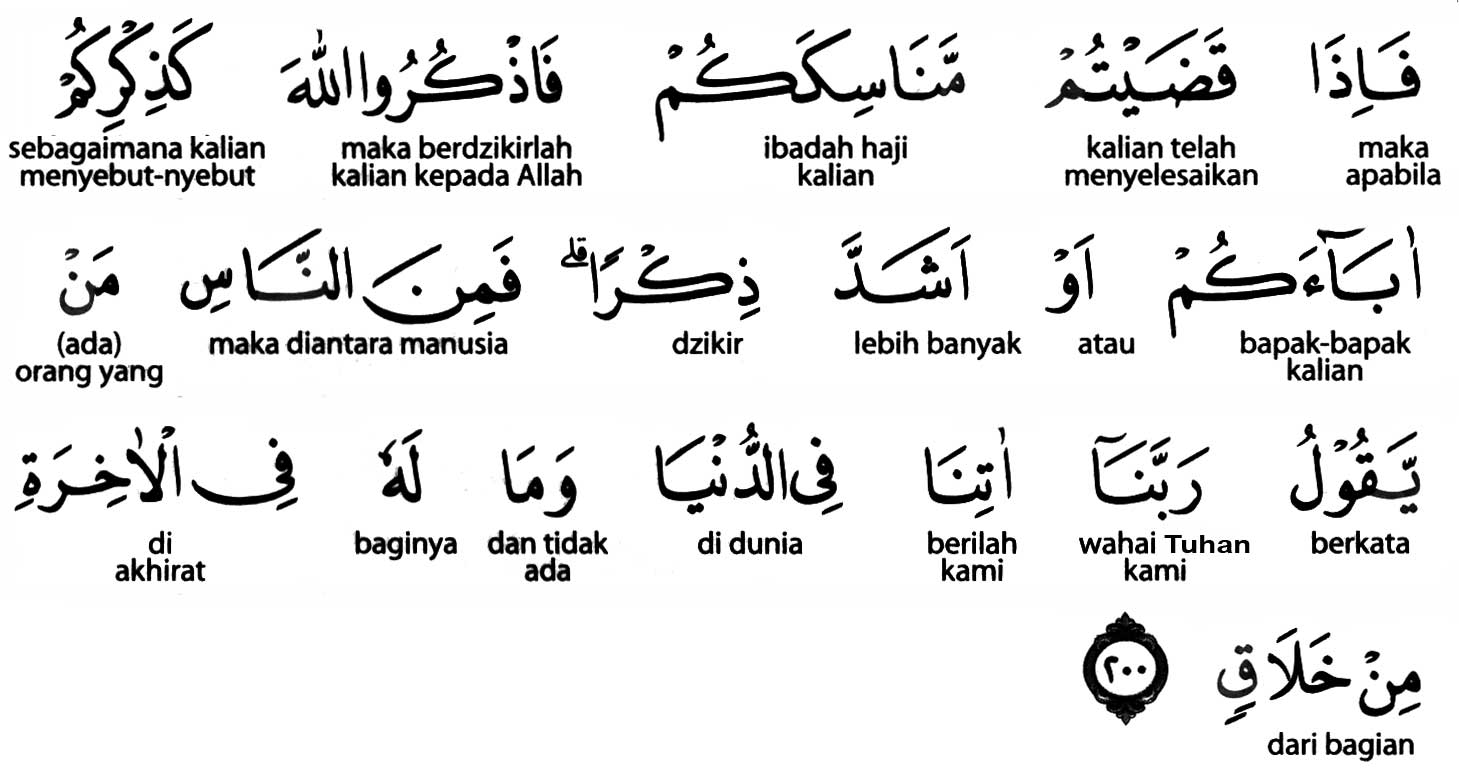 فَاِذَا قَضَيْتُمْ مَّنَاسِكَكُمْ فَاذْكُرُوا اللّٰهَ كَذِكْرِكُمْ
maka apabila kalian telah menyelesaikan ibadah haji kalian maka berdzikirlah kalian kepada Allah sebagaimana kalian menyebut-nyebut
اٰبَاۤءَكُمْ اَوْ اَشَدَّ ذِكْرًاۗ فَمِنَ النَّاسِ مَنْ
bapak-bapak kalian atau lebih banyak dzikir maka diantara manusia (ada) orang yang
يَّقُوْلُ رَبَّنَآ اٰتِنَا فِى الدُّنْيَا وَمَا لَهٗ فِى الْاٰخِرَةِ
berkata wahai Tuhan kami berilah kami di dunia dan tidak ada baginya di akhirat
مِنْ خَلَاقٍ ٢٠٠
dari bagian